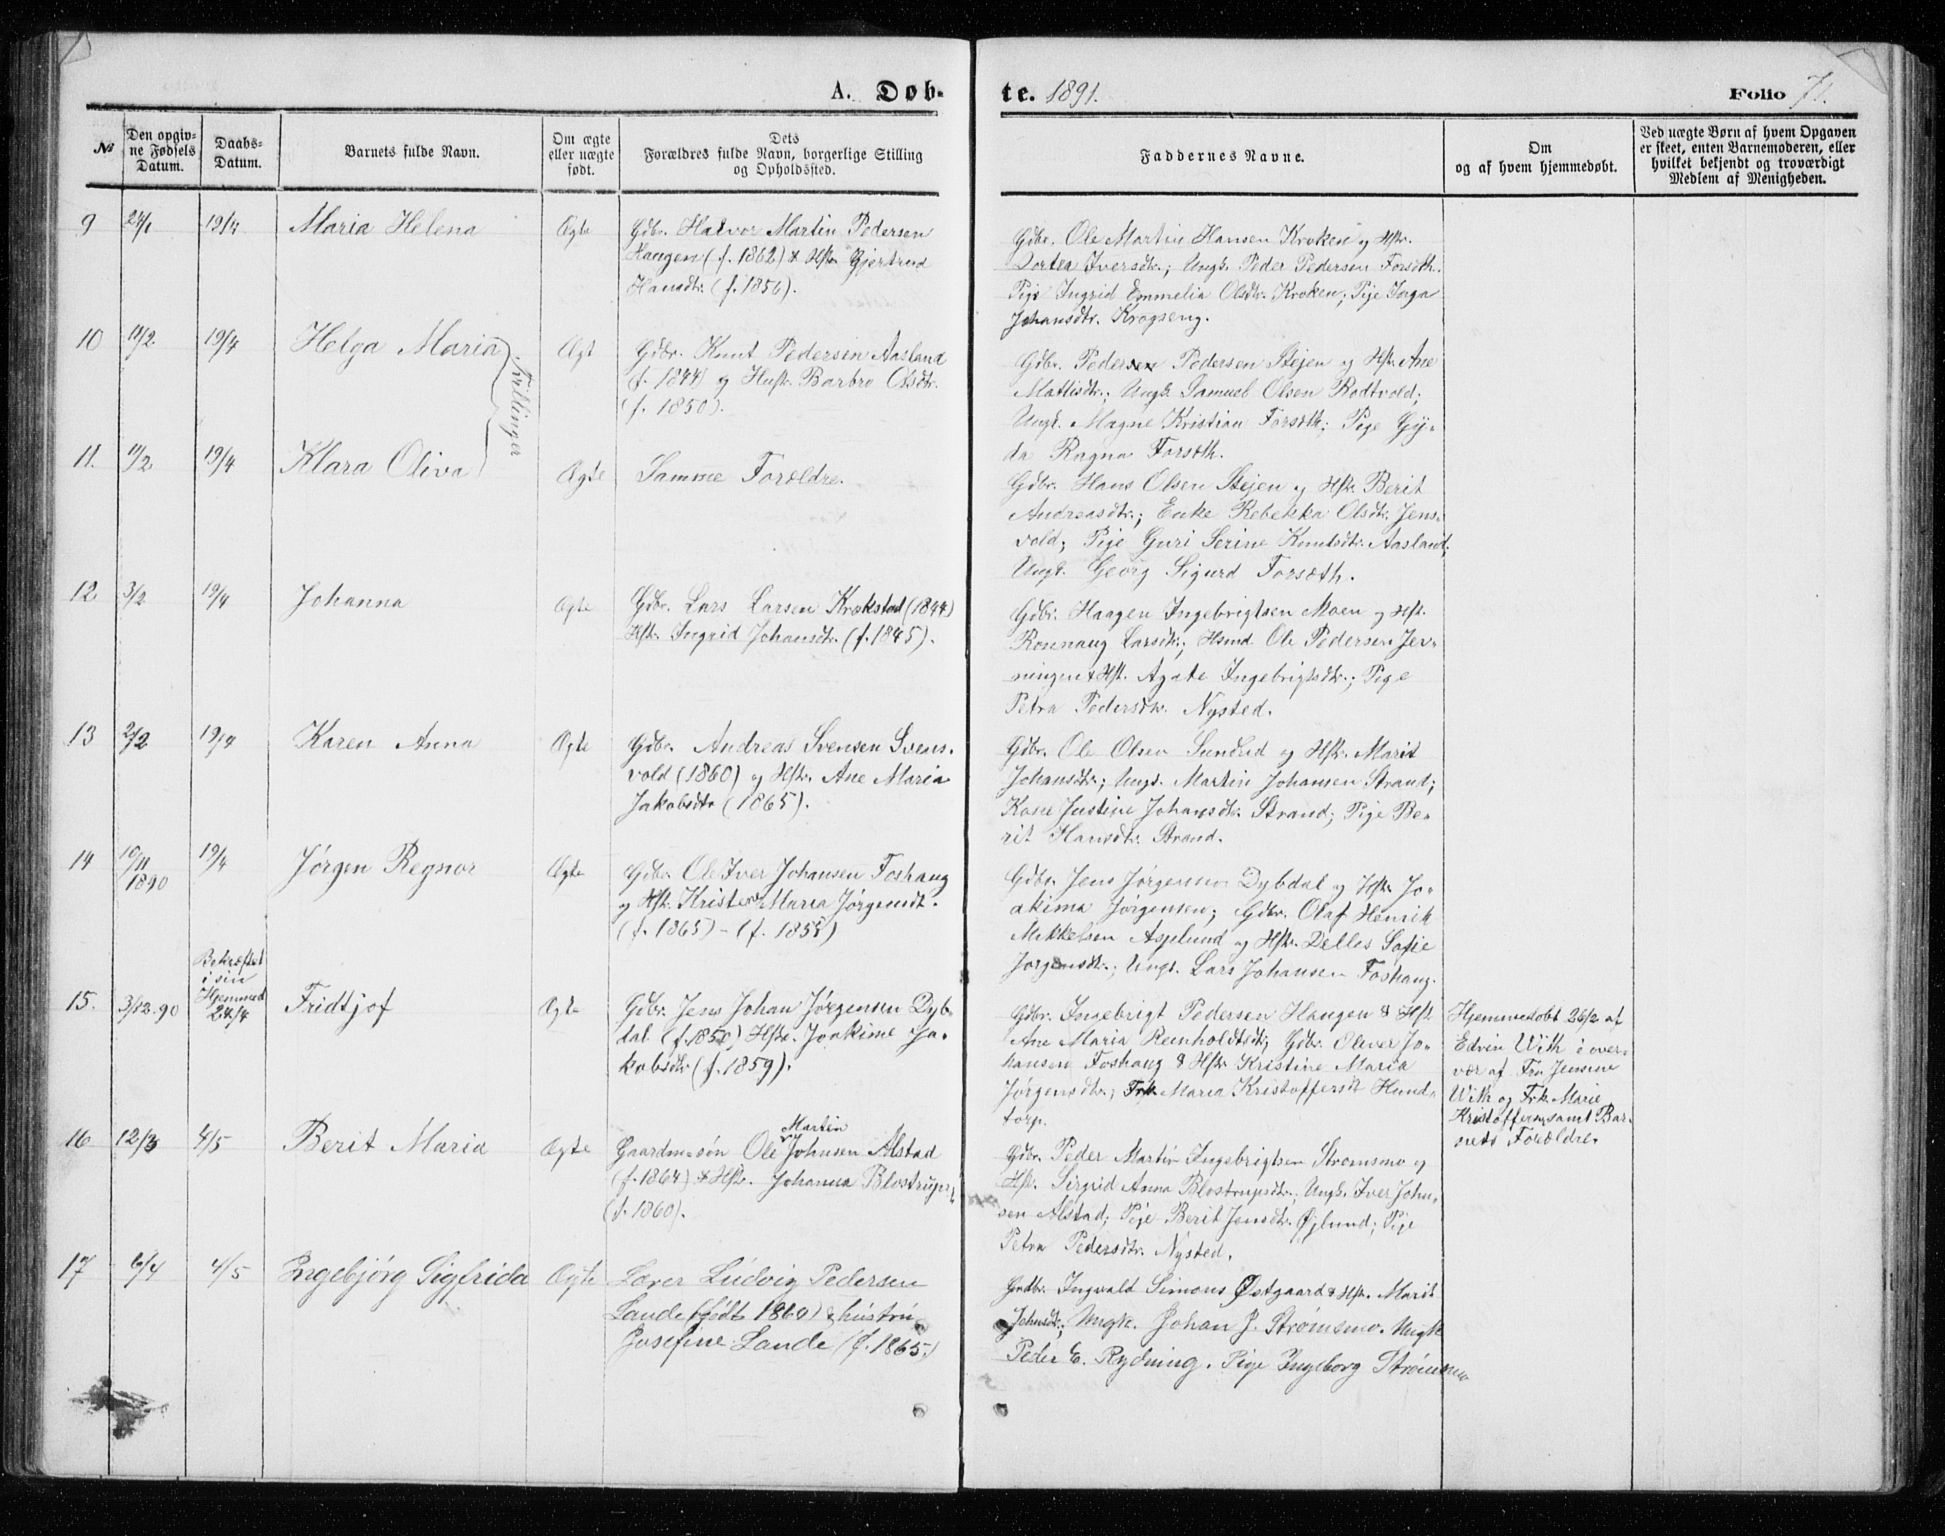 A. Døb-
te. 1891.
Folio 71.
No
Den opgiv-
ne Fødsels
Datum.
Daabs-
Datum.
Barnets fulde Navn.
Om ægte
eller uægte
født.
Dets
Forældres fulde Navn, borgerlige Stilling
og Opholdssted.
Faddernes Navne.
Om
og af hvem hjemmedøbt.
Ved uægte Børn af hvem Opgaven
er skeet, enten Barnemoderen, eller
hvilket bekjendt og troværdigt
Medlem af Menigheden.
9 24/1 19/4 Maria Helena Ægte
Gdbr. Halvor Martin Pedersen
Haugen (f. 1862) & Hstr. Gjertrud
Hansdtr. (f. 1856).
Gdbr. Ole Martin Hansen Kroken og Hstr.
Dortea Iversdtr.; Ungk. Peder Pedersen Forsth.
Pige Ingrid Emmelia Olsdtr. Kroken; Pige Inga
Johansdtr. Krogseng.
10 11/2 19/4 Helga Maria Ægt
Tvillinger
Gdbr. Knut Pedersen Aasland
(f. 1844) og Hustr. Barbro Olsdtr.
(f. 1850).
Gdbr. Pedersen Pedersen Stejen og Hstr. Ane
Mattisdtr.; Ungk. Samuel Olsen Rodtvold;
Ungk. Magne Kristian Forsøth; Pige Gy-
da Ragna Forsøth.
11. 11/2 19/4 Klara Oliva Ægte
Samme Forældre.
Gdbr. Hans Olsen Stejen og Hstr. Berit
Andreasdtr.; Enke Rebekka Olsdtr. Jens-
vold; Pige Guri Serine Knutsdtr. Aasland;
Ungk. Georg Sigurd Forsæth.
12 3/2 19/4 Johanna Ægte
Gdbr. Lars Larsen Krokstad (1844)
Hstr. Ingrid Johansdtr. (f. 1845).
Gdbr. Haagen Ingebrigtsen Moen og Hstr.
Ronnaug Larsdtr.; Hsmd Ole Pedersen Jer-
ningen & Hst. Agate Ingebrigtsdtr.; Pige
Petra Pedersdtr. Nysted.
13 2/2 19/4 Karen Anna Ægte
Gdbr. Andreas Svensen Svens-
vold (1860) og Hstr. Ane Maria
Jakobsdtr (1865).
Gdbr. Ole Olsen Sundlid og Hstr. Marit
Johansdtr.; Ungk. Martin Johansen Strand;
Kone Justine Johansdtr. Strand; Pige Be-
rit Hansdtr. Strand.
14 10/11 1890 19/4 Jørgen Regnor Ægte
Gdbr. Ole Iver Johansen Foshaug
og Hstr. Kristens Maria Jørgensdt.
(f. 1865) - (f. 1855)
Gdbr. Jens Jørgensen Dybdal og Hstr. Jo-
akima Jørgensen; Gdbr. Olaf Henrik
Mikkelsen Aspelund og Hstr. Delles Sofie
Jørgensdtr.; Ungk. Lars Johansen Foshaug.
15. 3/12.90
Bekræftet
i sin
Hjemmed
24/4
Fridtjof Ægte
Gdbr. Jens Johan Jørgensen Dyb-
dal (f. 1850) Hstr. Joakime Ja-
kobsdtr (f. 1859).
Gdbr. Ingebrigt Pedersen Haugen & Hst
Ane Maria Reinholdtsdtr; Gdbr. Oliver Jo-
hansen Foshaug & Hstr. Kristine Maria
Jørgensdtr.; Frk. Maria Kristoffersdt Hund-
torp.
Hjemmedøbt 26/2 af
Edvin With i over-
vær af Fru Jensine
With og Frk. Marie
Kristoffersen samt Bar-
nets Forældre.
16 12/3 4/5 Berit Maria Ægte
Gaardm.søn Ole Martin Johnsen Alstad
(f. 1864) & Hstr. Johanna Blostrups.
(f. 1860).
Gdbr. Peder Martin Ingebrigtsen Strømsmo og
Hst. Sirgrid Anna Blostrupsdtr.; Ungk. Iver John-
sen Alstad; Pige Berit Jensdtr. Øglund; Pige
Petra Pedersdtr. Nysted.
17 6/4 4/5 Ingebjørg Sigfrida Ægte
Lærer Ludvig Pedersen
Lande (født 1860) & hustru
Josefine Lande (f. 1865.)
Grdbr. Ingvald Simons Østgaard & Hstr. Marit
Johnsdtr; Ungk. Johan J. Strømsmo. Ungk
Peder E. Rydning. Pige Ingeborg Strømsmo